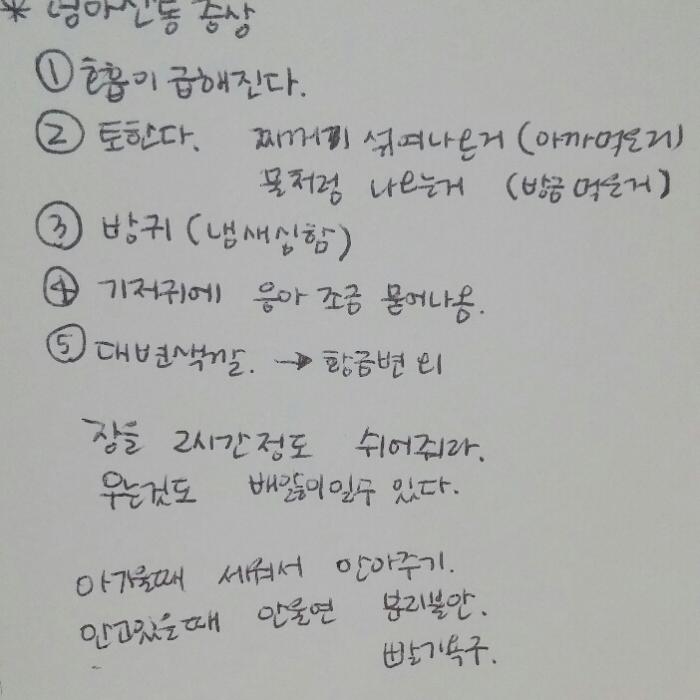 * 영아산통 증상
① 호흡이 급해진다.
② 토한다. 찌꺼기 섞여나온거 (아까먹은거)
물처럼 나오는거 (방금 먹은거)
③ 방귀 (냄새심함)
④ 기저귀에 응아 조금 묻어나옴.
⑤ 대변색깔. → 황금변 외
장을 2시간정도 쉬어줘라.
우는것도 배앓이일수 있다.
아가울때 세워서 안아주기.
안고있을때 안울면 분리불안.
빨기욕구.